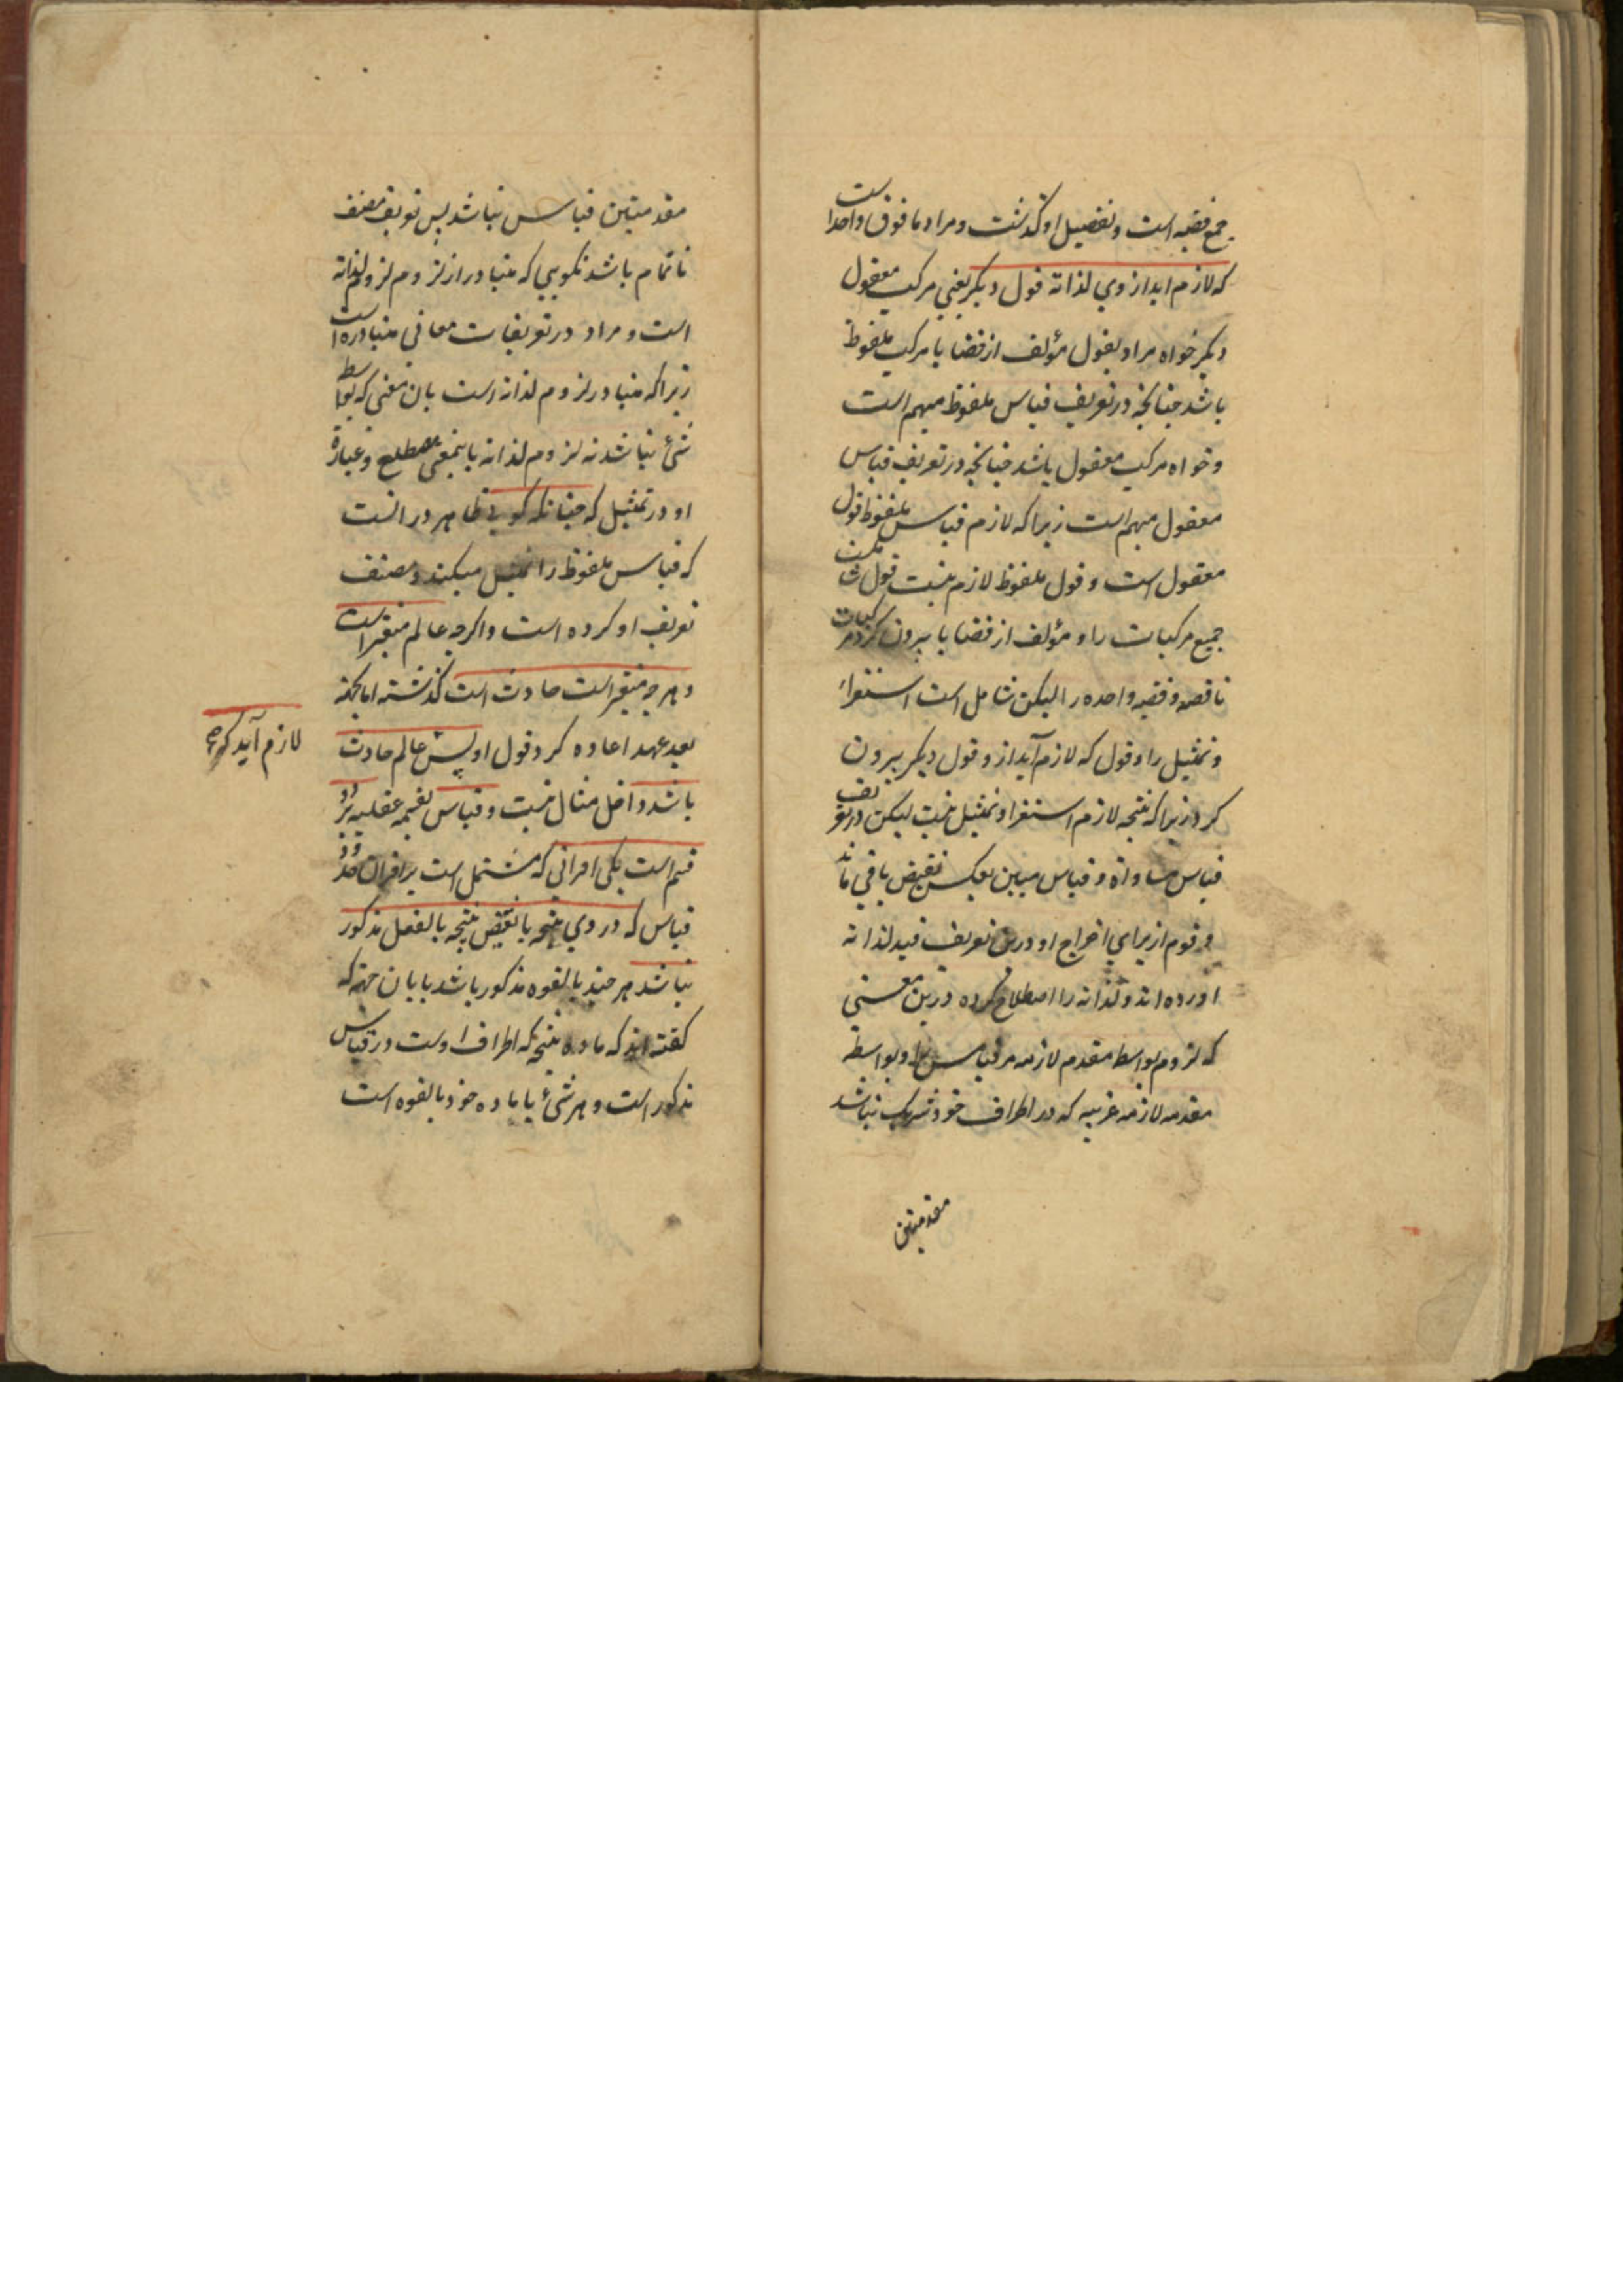 جمع قضیه است و تفصیل او گذشت و مراد ما فوق واحد است
که لازم اید از وی لذاته قول دیگر یعنی مرکب معقول
دیگر خواه مراد بقول مؤلف از قضایا مرکب ملفوظ
باشد چنانچه در تعریف قیاس ملفوظ مبهم است
و خواه مرکب معقول باشد چنانچه در تعریف قیاس
معقول مبهم است زیرا که لازم قیاس ملفوظ قول
معقول است و قول ملفوظ لازم نیست قول شاملست
جمیع مرکبات را و مؤلف از قضایا بیرون کرد مرکبات
ناقصه و قضیه واحده را لیکن شامل است استقراء
و تمثیل را و قول که لازم آید از و قول دیگر بیرون
کرد زیرا که نتیجه لازم استقرا و تمثیل نیست لیکن در تعریف
قیاس مساواة و قیاس مبین بعکس نقیض باقی ماند
و قوم از برای اخراج او درین تعریف قید لذاته
اورده اند و لذاته را اصطلاح کرده درین معنی
که لزوم بواسطه مقدمه لازمه مر قیاس را و بواسطه
مقدمه لازمه غریبه که در اطراف خود شریک نباشد
مقدمتین
مقدمتین قیاس نباشد پس تعریف مصنف
ناتمام باشد نگویی که متبادر از لزوم لزوم لذاته
است و مراد در تعریفات معانی متبادره است
زیرا که متبادر لزوم لذاته است بان معنی که بواسطه
شئ نباشد نه لزوم لذاته باینمعنی مصطلح و عبارة
او در تمثیل که چنانکه گویی ظاهر در انست
که قیاس ملفوظ را تمثیل میکند و مصنف
تعریف او کرده است و اگرچه عالم متغیر است
و هرچه متغیر است حادث است گذشته اما بجهة
بعد عهد اعاده کرد و قول او پس عالم حادث
لازم آید که
باشد داخل مثال نیست و قیاس بقسمه عقلیه بر دو
قسم است یکی اقترانی که مشتمل است بر اقتران حدود
قیاس که در وی نتیجه یا نقیض نتیجه بالفعل مذکور
نباشد هر چند بالقوه مذکور باشد یا بان جهة که
گفته اند که ماده نتیجه که اطراف اوست در قیاس
مذکور است و هر شئ با ماده خود بالقوه است